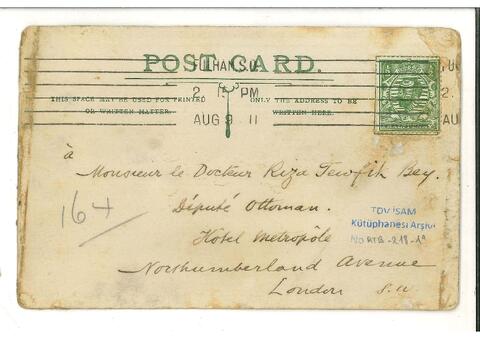 POST CARD.
FULHAM S.O.
2 PM
AUG 9 11
THIS SPACE MAY BE USED FOR PRINTED
OR WRITTEN MATTER.
ONLY THE ADDRESS TO BE
WRITTEN HERE.
à
Monsieur le Docteur Riza Tewfik Bey.
Député Ottoman.
Hotel Metropôle
Northumberland Avenue
London S.W
164
TDV İSAM
Kütüphanesi Arşivi
No RTB-218-1a